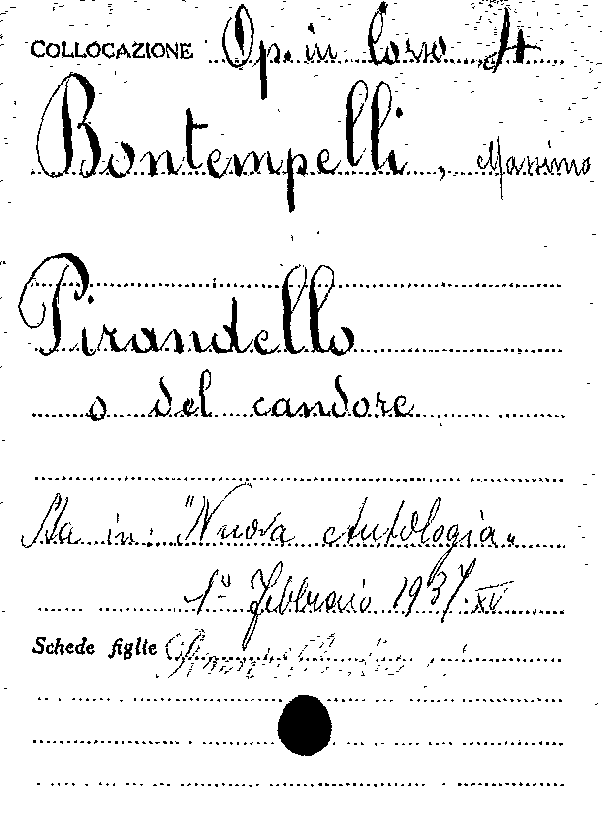 COLLOCAZIONE Op. in corso 4
Bontempelli, Massimo
Pirandello
o del candore
Sta in: "Nuova Antologia"
1º Febbraio 1937. XV
Schede figlie